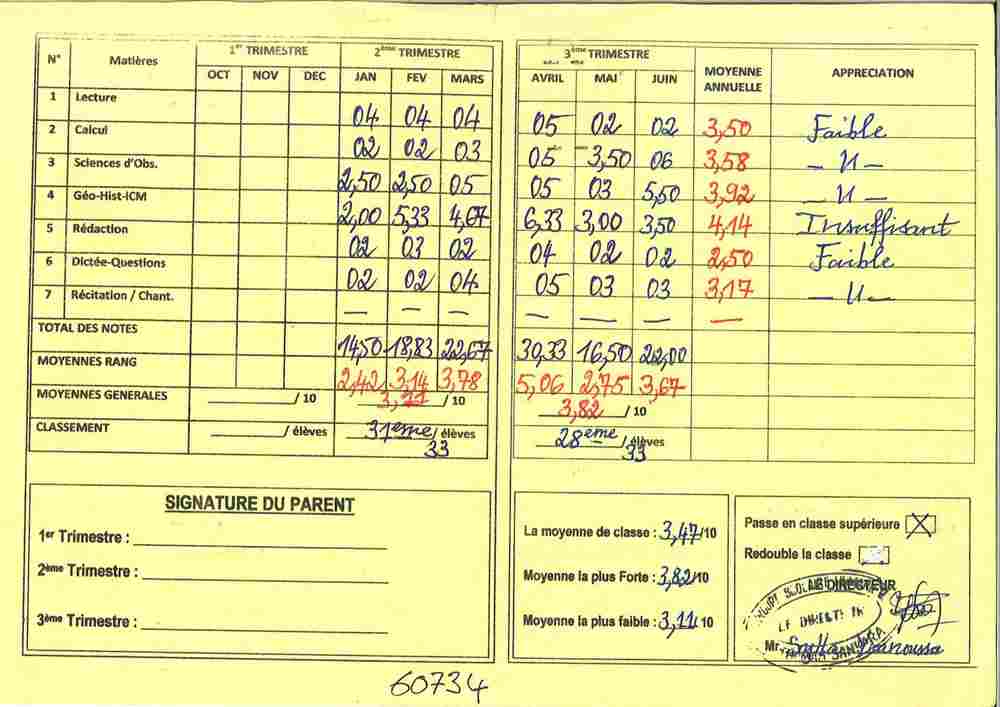 N° Matières 1er TRIMESTRE 2ème TRIMESTRE 3ème TRIMESTRE MOYENNE ANNUELLE APPRECIATION
OCT NOV DEC JAN FEV MARS AVRIL MAI JUIN
1 Lecture 04 04 04 05 02 02 3,50 Faible
2 Calcul 02 02 03 05 3,50 06 3,58 _ 11 _
3 Sciences d'Obs. 2,50 2,50 05 05 03 5,50 3,92 _ 11 _
4 Géo-Hist-ICM 2,00 5,33 4,67 6,33 3,00 3,50 4,14 Insuffisant
5 Rédaction 02 03 02 04 02 02 2,50 Faible
6 Dictée-Questions 02 02 04 05 03 03 3,17 _ 11 _
7 Récitation / Chant. — — — — — — —
TOTAL DES NOTES 14,50 18,83 22,67 30,33 16,50 22,00
MOYENNES RANG 2,42 3,14 3,78 5,06 2,75 3,67
MOYENNES GENERALES ______/ 10 / 10 3,82 / 10
CLASSEMENT ______/ élèves 31ème/ élèves 33 28ème/ élèves 33
SIGNATURE DU PARENT
1er Trimestre :
2ème Trimestre :
3ème Trimestre :
La moyenne de classe : 3,47/10
Moyenne la plus Forte : 3,82/10
Moyenne la plus faible : 3,11/10
Passe en classe supérieure X
Redouble la classe
LE DIRECTEUR
LE DIRECT
Mr
60734